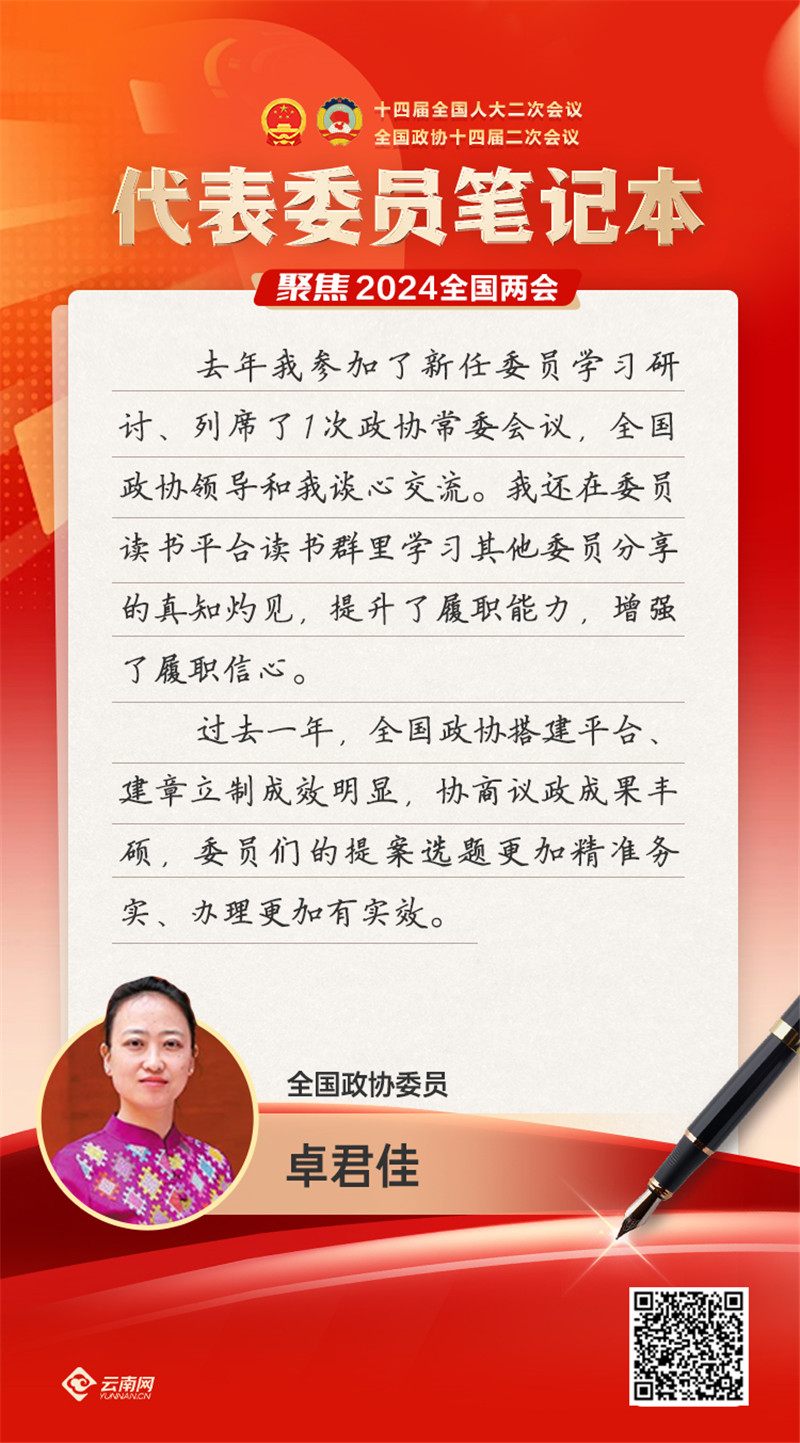 十四届全国人大二次会议
全国政协十四届二次会议
代表委员笔记本
聚焦2024全国两会
去年我参加了新任委员学习研
讨、列席了1次政协常委会议，全国
政协领导和我谈心交流。我还在委员
读书平台读书群里学习其他委员分享
的真知灼见，提升了履职能力，增强
了履职信心。
过去一年，全国政协搭建平台、
建章立制成效明显，协商议政成果丰
硕，委员们的提案选题更加精准务
实、办理更加有实效。
全国政协委员
卓君佳
云南网
YUNNAN.CN